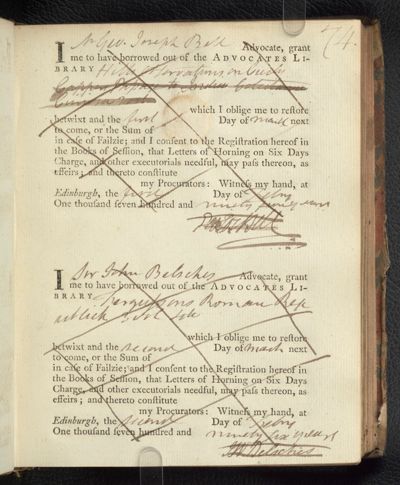 74.
I Mr Geo. Joseph Bell Advocate, grant
me to have borrowed out of the ADVOCATES LI-
BRARY Observations on
which I oblige me to reſtore
betwixt and the first Day of March next
to come, or the Sum of
in caſe of Failzie; and I conſent to the Regiſtration hereof in
the Books of Seſſion, that Letters of Horning on Six Days
Charge, and other executorials needful, may paſs thereon, as
effeirs; and thereto conſtitute
my Procurators: Witneſs my hand, at
Edinburgh, the first Day of Febry
One thouſand ſeven hundred and ninety years
I Sir John Belsches Advocate, grant
me to have borrowed out of the ADVOCATES LI-
BRARY Fergusons Roman Rep
ublick
which I oblige me to reſtore
betwixt and the second Day of March next
to come, or the Sum of
in caſe of Failzie; and I conſent to the Regiſtration hereof in
the Books of Seſſion, that Letters of Horning on Six Days
Charge, and other executorials needful, may paſs thereon, as
effeirs; and thereto conſtitute
my Procurators: Witneſs my hand, at
Edinburgh, the second Day of Febry
One thouſand ſeven hundred and ninety six years
Belsches